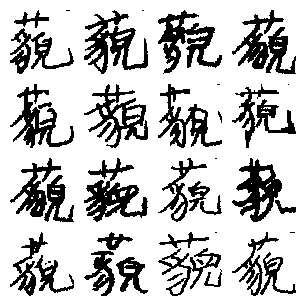 藐藐藐藐
藐藐藐藐
藐藐藐藐
藐藐藐藐